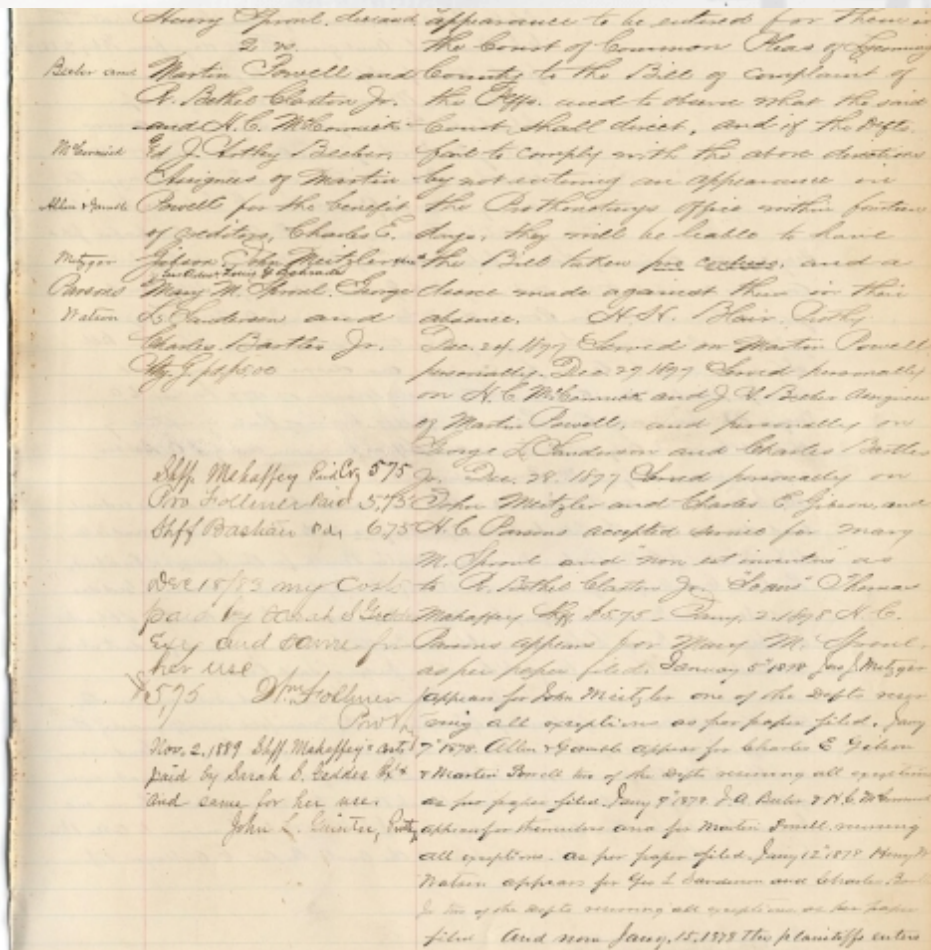 Henry Sproul, deceased
2 vs.
Martin Powell and
R. Bethel Claxton Jr.
and H. C. McCormick
J. Hothy Beeber,
Assignees of Martin
Powell for the benefit
of creditors, Charles E.
Gibson & John Meitzler
Mary M. Sproul. George
L. Sanderson and
Charles Bartles Jr.
Beeber and
McCormick
Allen & Gamble
Metzger
Parsons
Watson
Shff. Mahaffey Paid 575
Pro Follmer Paid 5,75
Shff Bastian Pd. 675
Dec 18/83 my Costs
paid by Sarah S Geddes
Exx and same for
her use
$5,75 Wm Follmer
Proth
Nov. 2. 1889 Shff. Mahaffey's costs
paid by Sarah S. Geddes Ex'x
and same for her use.
John L. Guinter, Prothy
appearance to be entered for them in
the Court of Common Pleas of Lycoming
County to the Bill of complaint of
the Plffs. and to observe what the said
Court shall direct, and if the Defts.
fail to comply with the above directions
by not entering an appearance in
the Prothonotarys office within fourteen
days, they will be liable to have
the Bill taken pro confesso, and a
decree made against them in their
absence. H. H. Blair, Prothy
Dec. 24. 1877 Served on Martin Powell
personally. Dec. 27 1877 Served personally
on H. C. McCormick and J. H. Beeber assignees
of Martin Powell, and personally on
George L. Sanderson and Charles Bartles
Jr. Dec. 28. 1877 Served personally on
John Meitzler and Charles E. Gibson, and
H. C. Parsons accepted service for Mary
M. Sproul and "non est inventus" as
to R. Bethel Claxton Jr. Thomas
Mahaffey Shff $5.75 - Jany. 2. 1878 H. C.
Parsons appears for Mary M. Sproul
as per paper filed. January 5" 1878 Jno. J. Metzger
appears for John Meitzler one of the Defts reser
ving all exceptions as per paper filed. Jany
7" 1878. Allen & Gamble appear for Charles E Gibson
& Martin Powell two of the Defts reserving all exceptions
as per paper filed. Jany 9" 1878. J. A. Beeber & H. C. McCormick
appear for themselves and for Martin Powell. reserving
all exceptions. as per paper filed. Jany 12" 1878 Henry W
Watson appears for Geo L Sanderson and Charles Bartles
Jr two of the Defts reserving all exceptions as per paper
filed And now Jany. 15. 1878 the plaintiffs enters